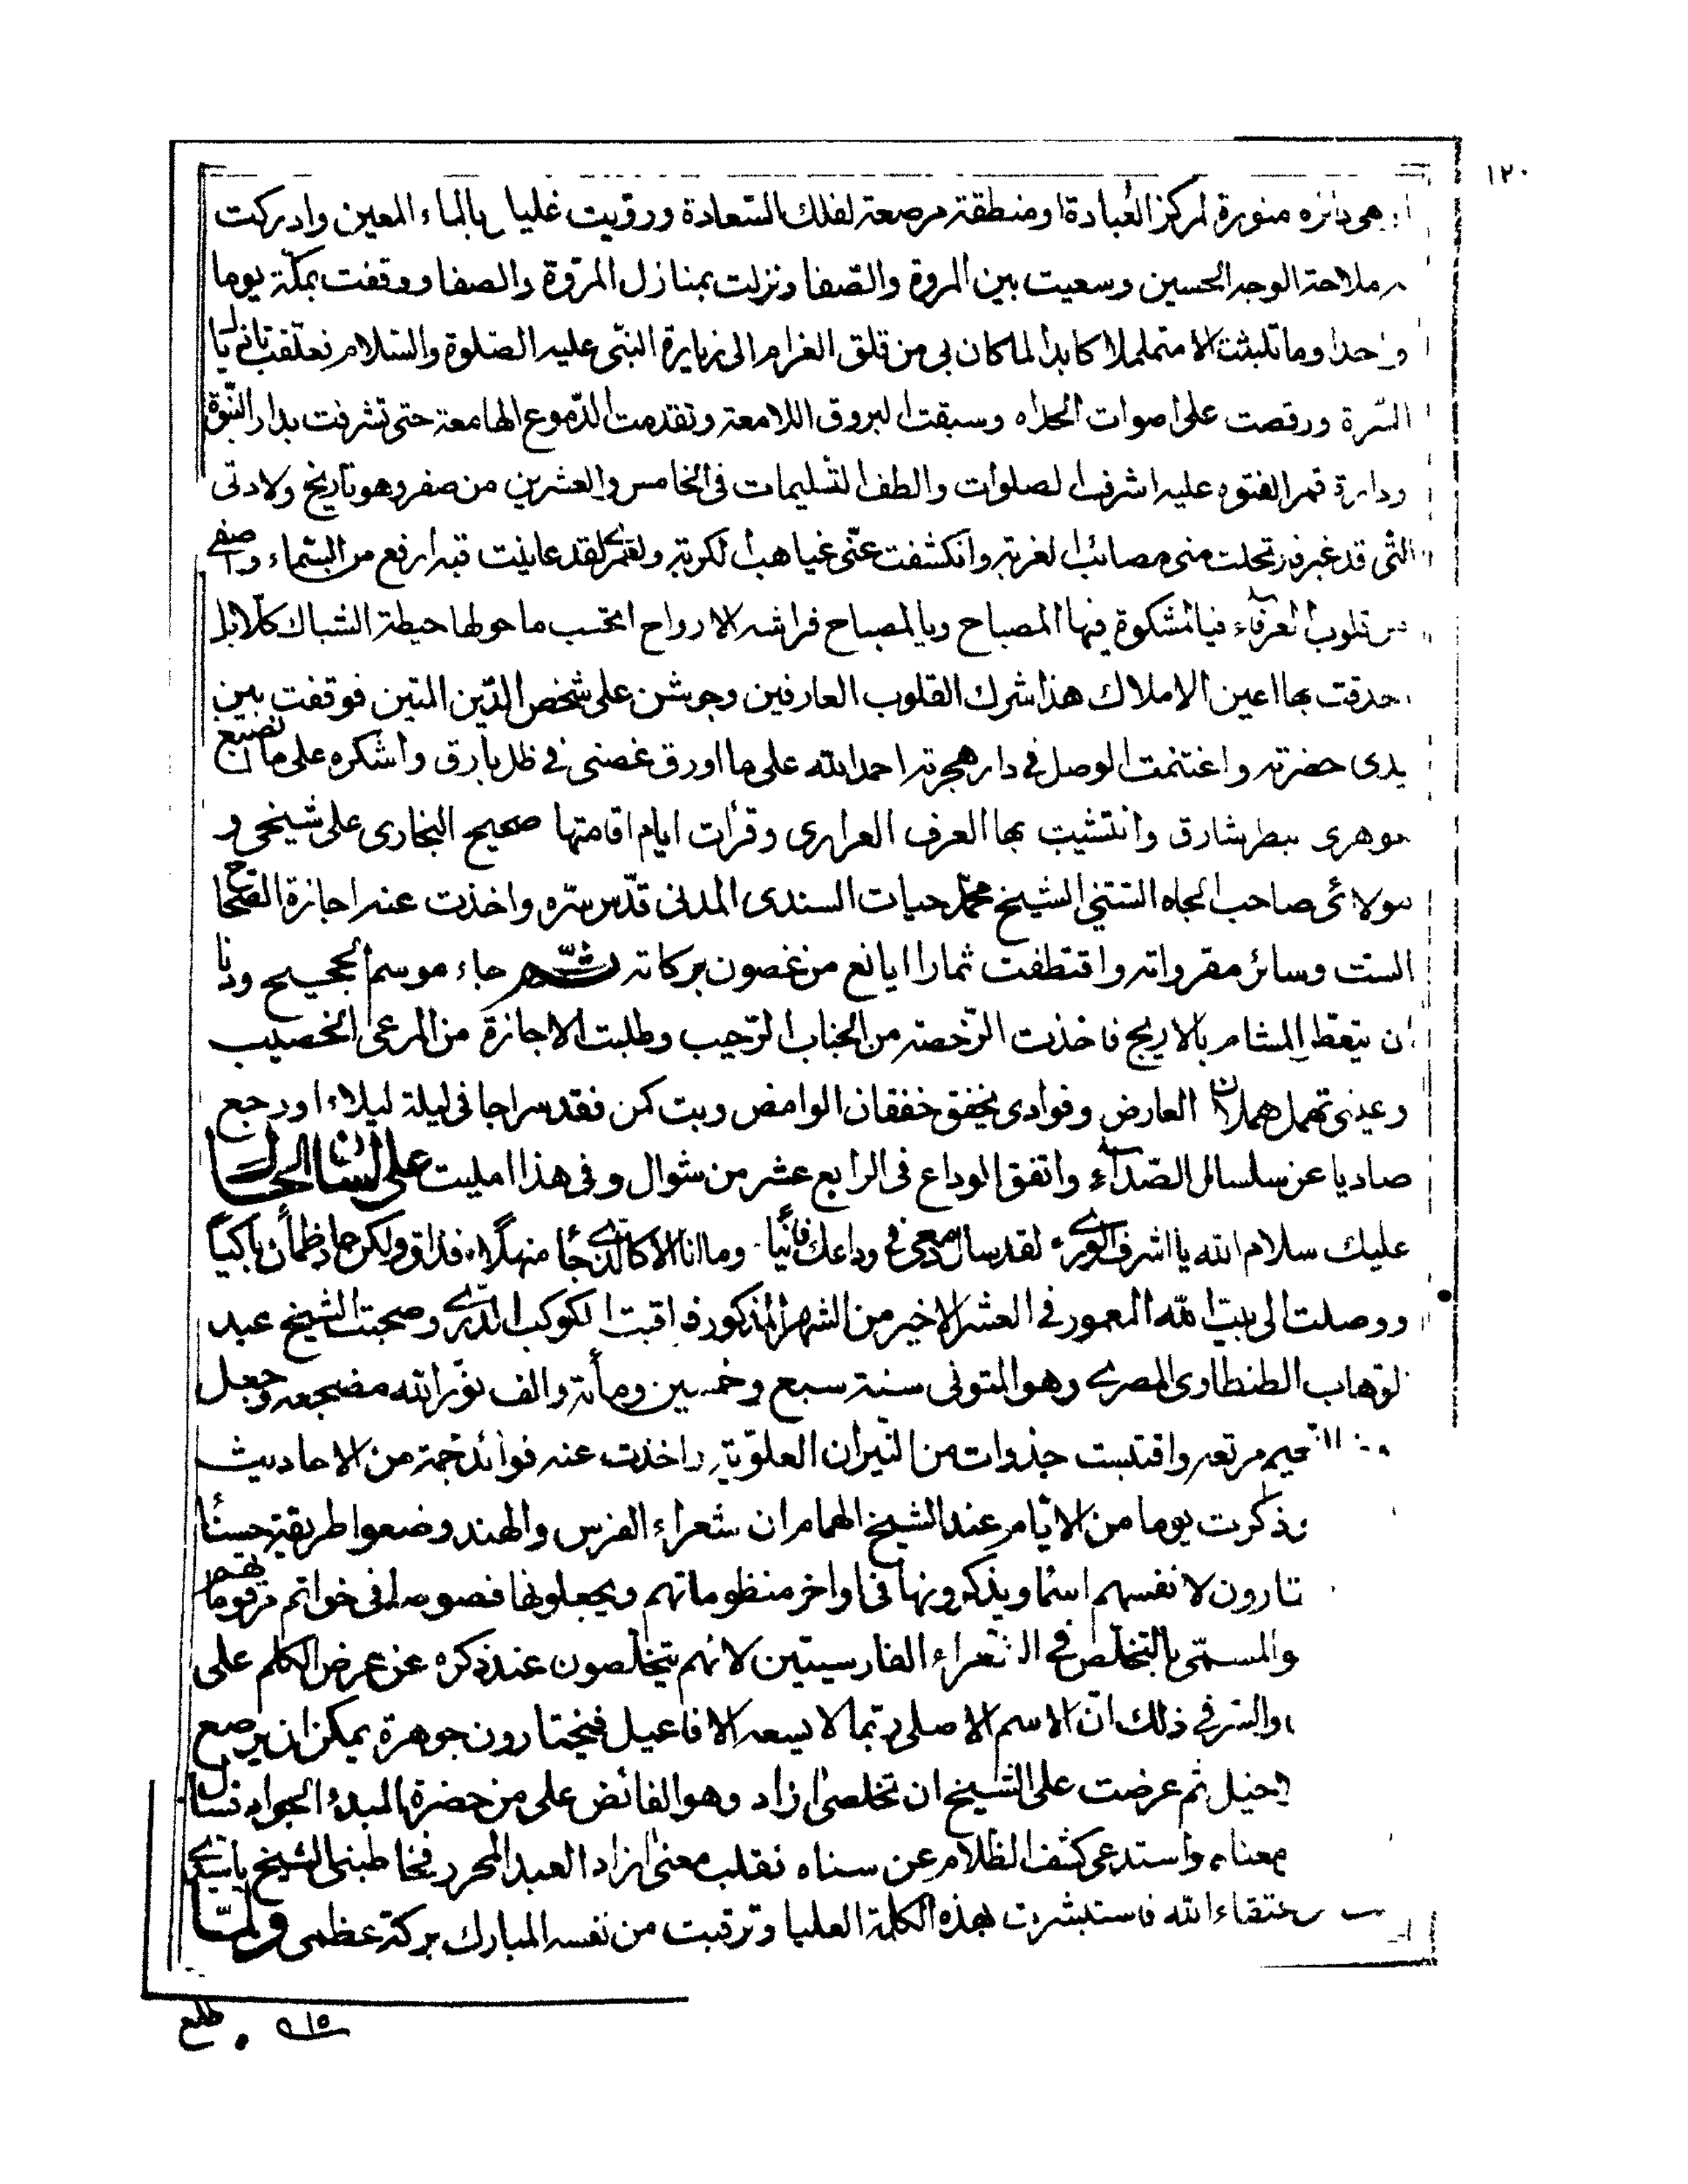 ١٢٠
هى دائره منورة لمركز العبادة او منطقة مرصعة لفلك السّعادة ورويت غليلى بالماء المعين وادركت
ملاحة الوجه الحسين وسعيت بين المروة والصّفا ونزلت بمنازل المروّة والصفا ووقفت بمكّة يوما
واحدا وما تلبثت الا متململا كابدا لما كان بى من قلق الغرام الى زيارة النبّى عليه الصّلوة والسّلام فتعلّقت باذيال
السّرة ورقصت على اصوات الحداه وسبقت البروق اللامعة وتقدمت الدّموع الهامعة حتى تشرفت بدار النبّوة
ودارة قمر الفتوه عليه اشرف الصلوات والطف التسليمات فى الخامس والعشرين من صفر وهو تاريخ ولادتى
التى قد غبر فتجلت منى مصائب الغربة وانكشفت عنّى غياهب الكربة ولعمرى لقد عاينت قبة ارفع من السّماء واصفى
من قلوب العرفاء فيا لمشكوة فيها المصباح ويا لمصباح فراشه الارواح اتحسب ما حولها حيطة الشباك كلّا بل
احدقت بها اعين الاملاك هذا شرك القلوب العارفين وجوشن على شخص الدّين المتين فوقفت بين
يدى حضرته واغتنمت الوصل فى دار هجرته احمد الله على ما اورق غصنى فى ظل بارق واشكره على ما ان تصنيع
جوهرى بيطر شارق وانتشيت بها العرف العرارى وقرأت ايام اقامتها صحيح البخارى على شيخى و
مولائى صاحب الجاه السّنى الشيخ محمّد حيات السندى المدنى قدّس سرّه واخذت عنه اجازة الصّحاح
الست وسائر مقرواته واقتطفت ثمارا ايانع من غصون بركاته ثمّ جاء موسم الحجيج ودنا
ان يتعطّر المشام بالاريج فاخذت الرّخصة من الجناب الرّحيب وطلبت الاجازة من المرعى الخصيب
وعينى تهمل هملان العارض وفوادى يخفق خفقان الوامض وبت كمن فقد سراجا فى ليلة ليلاء او رجع
صاديا عن سلسال الصّداء واتفق الوداع فى الرابع عشر من شوال وفى هذا امليت على لسان الحال
عليك سلام الله يا اشرف الورى لقد سال دمعى فى وداعك قانيا وما انا الا كالذى جاء منهلا فذاق ولكن عاد ظمأن باكيا
ووصلت الى بيت الله المعمور فى العشر الاخير من الشهر المذكور فراقبت الكوكب الدّرى وصحبت الشيخ عبد
الوهاب الطنطاوى المصرى وهو المتوفى سنة سبع وخمسين ومأة والف نوّر الله مضجعه وجعل
النعيم مرتعه واقتبست جذوات من النّيران العلوّية واخذت عنه فوائد جمّة من الاحاديث
وذكرت يوما من الايّام عند الشيخ الهمام ان شعراء الفرس والهند وضعوا طريقة حسنا
تارون لانفسهم اسما ويذكرونها فى اواخر منظوماتهم ويجعلونها فصوصا فى خواتم مرقوماتهم
والمسمّى بالتخلّص فى الشعراء الفارسيّين لانهم يتخلّصون عند ذكره عن عرض الكلم على
والسّر فى ذلك انّ الاسم الاصلى ربّما لا يسعه الافاعيل فيختارون جوهرة يمكن ان يرصع
ثم عرضت على الشّيخ ان تخلصى ازاد وهو الفائض على من حضرة المبدء الجواد فسال
معناه واستدعى كشف الظلام عن سناه فقلت معنى ازاد العبد المحرر فخاطبنى الشيخ يا سيّدى
عتقاء الله فاستبشرت بهذه الكلمة العليا وترقبت من نفسه المبارك بركة عظمى ولمّا